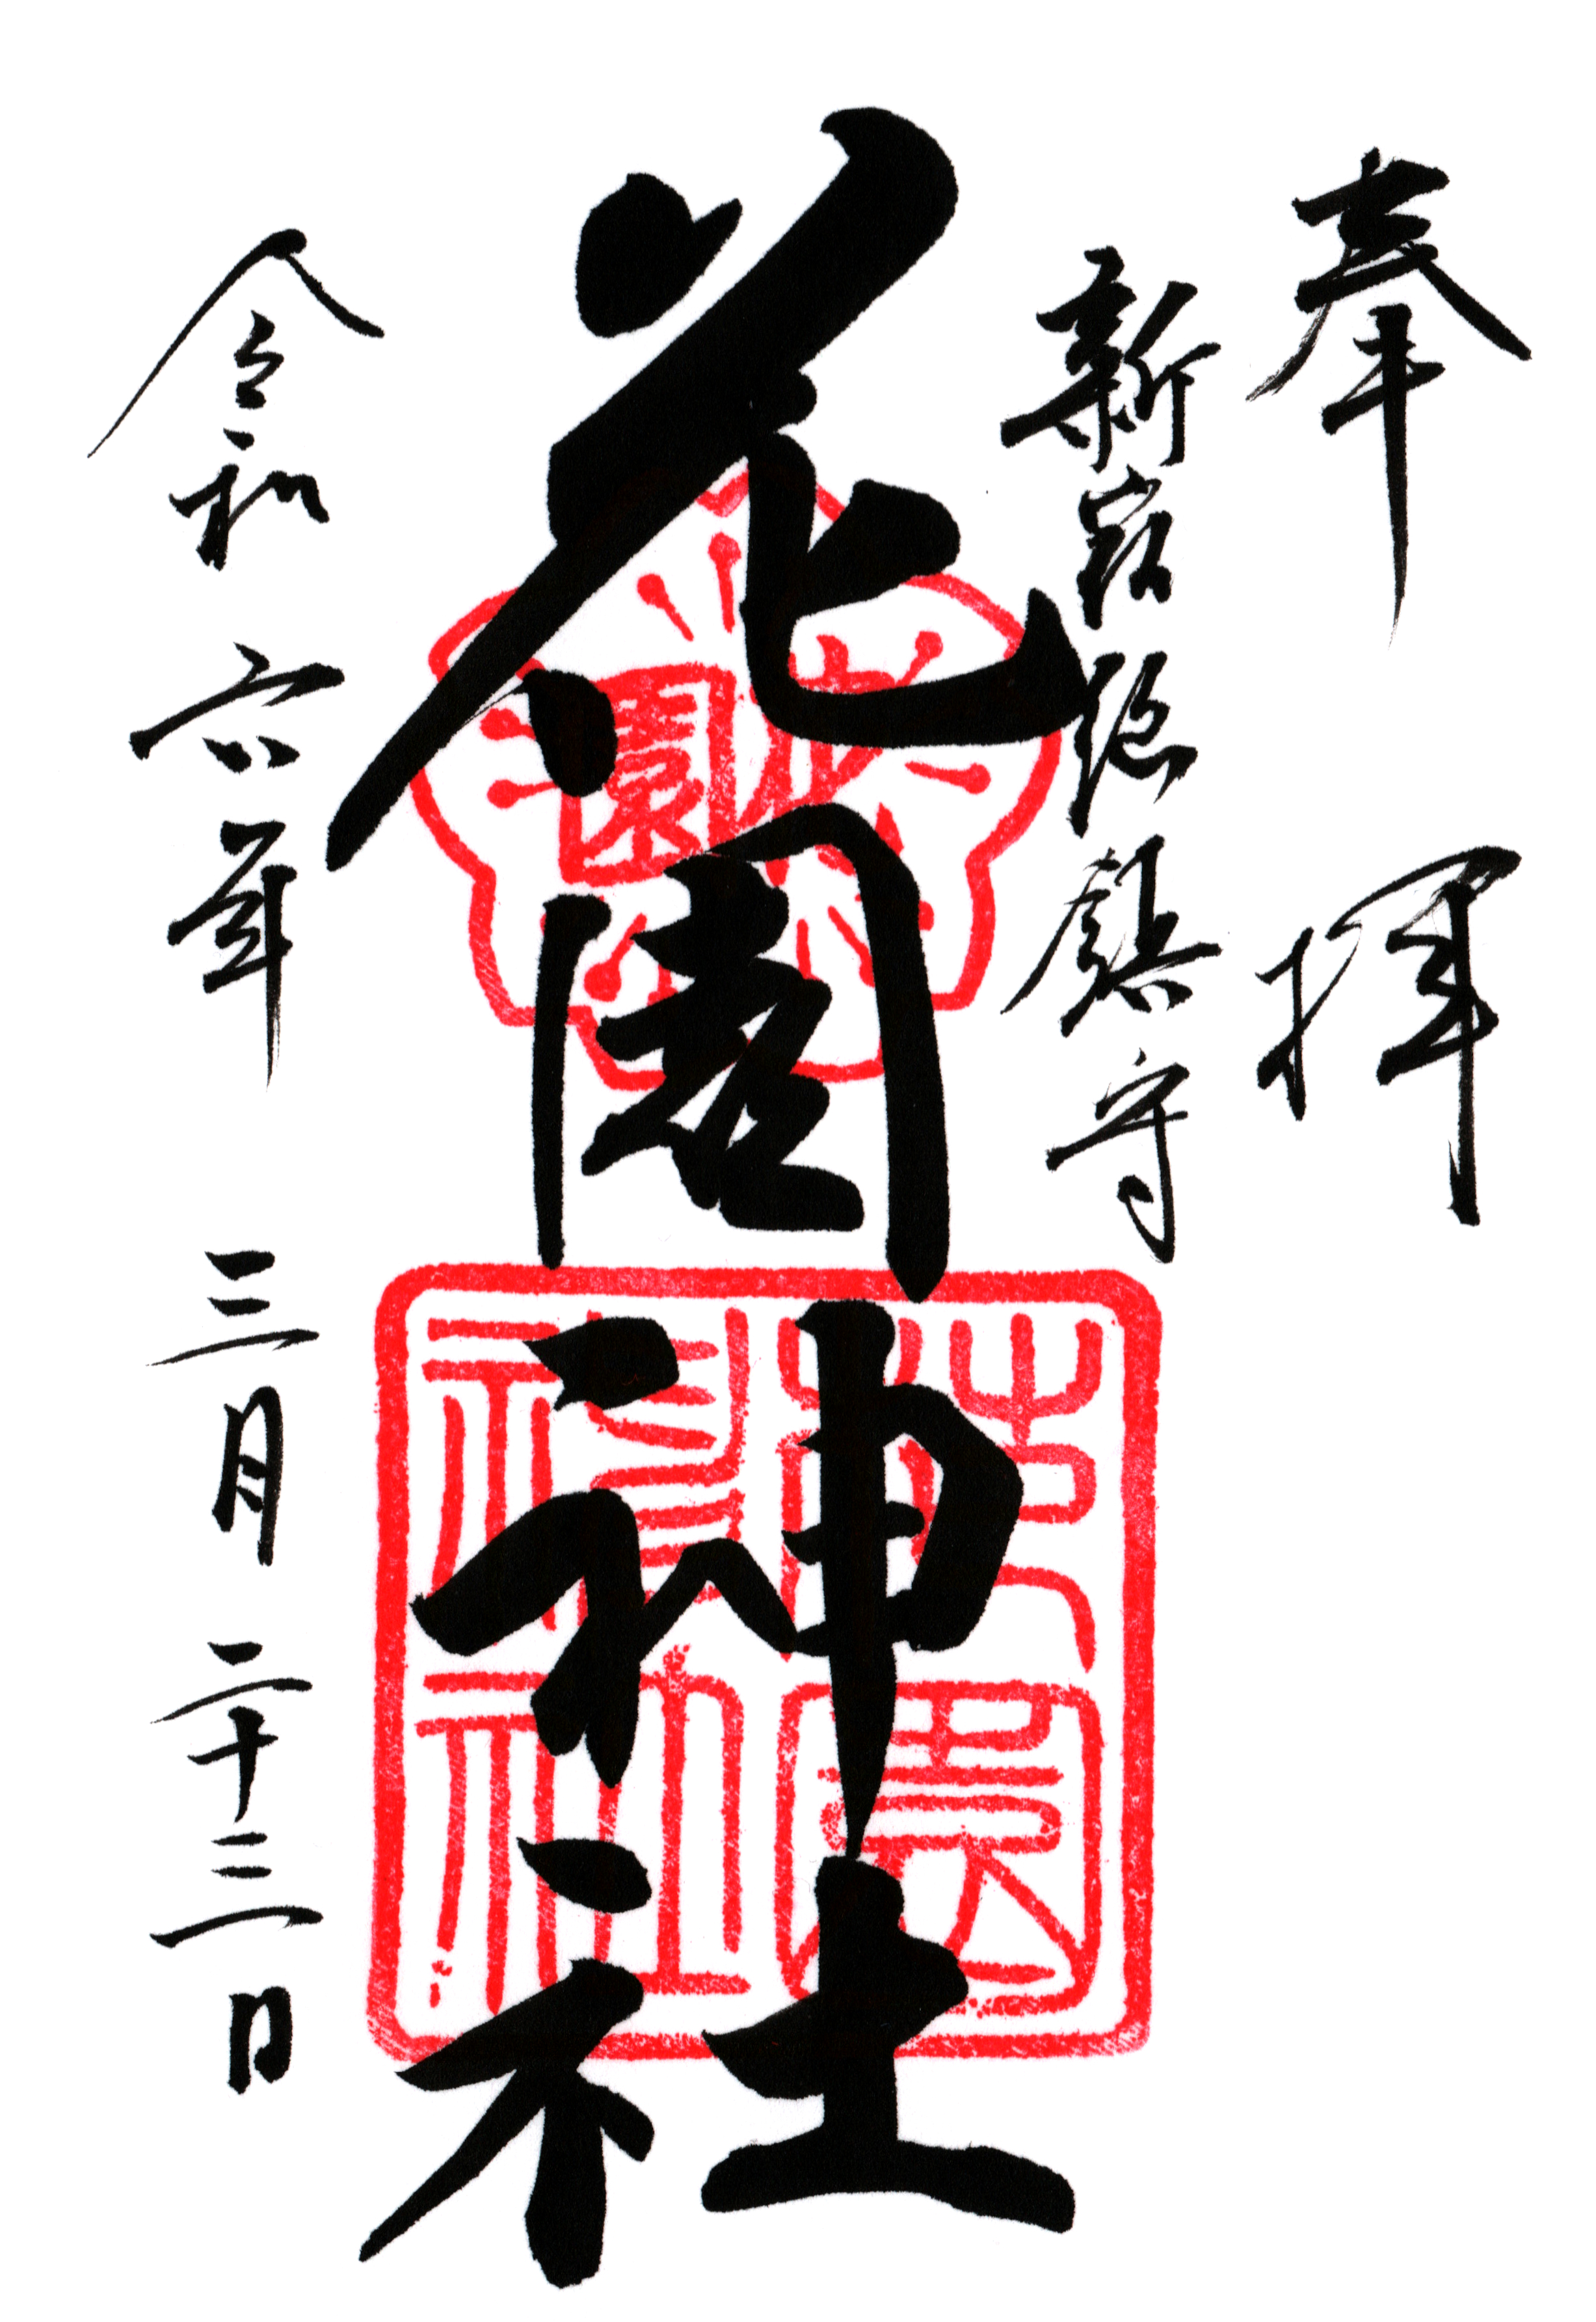 奉拝
新宿総鎮守
花園神社
花園
花園神社
令和六年三月二十三日